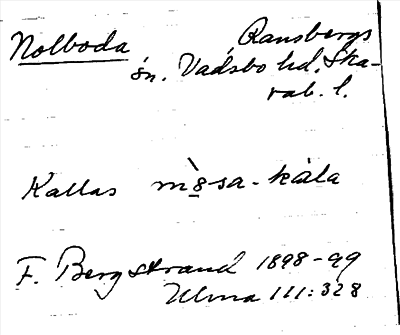 Nolboda Ransbergs
sn. Vadsbo hd, Ska-
rab. l.
Kallas mè̱sa-kála
F. Bergstrand 1898-99
Ulma 111:328